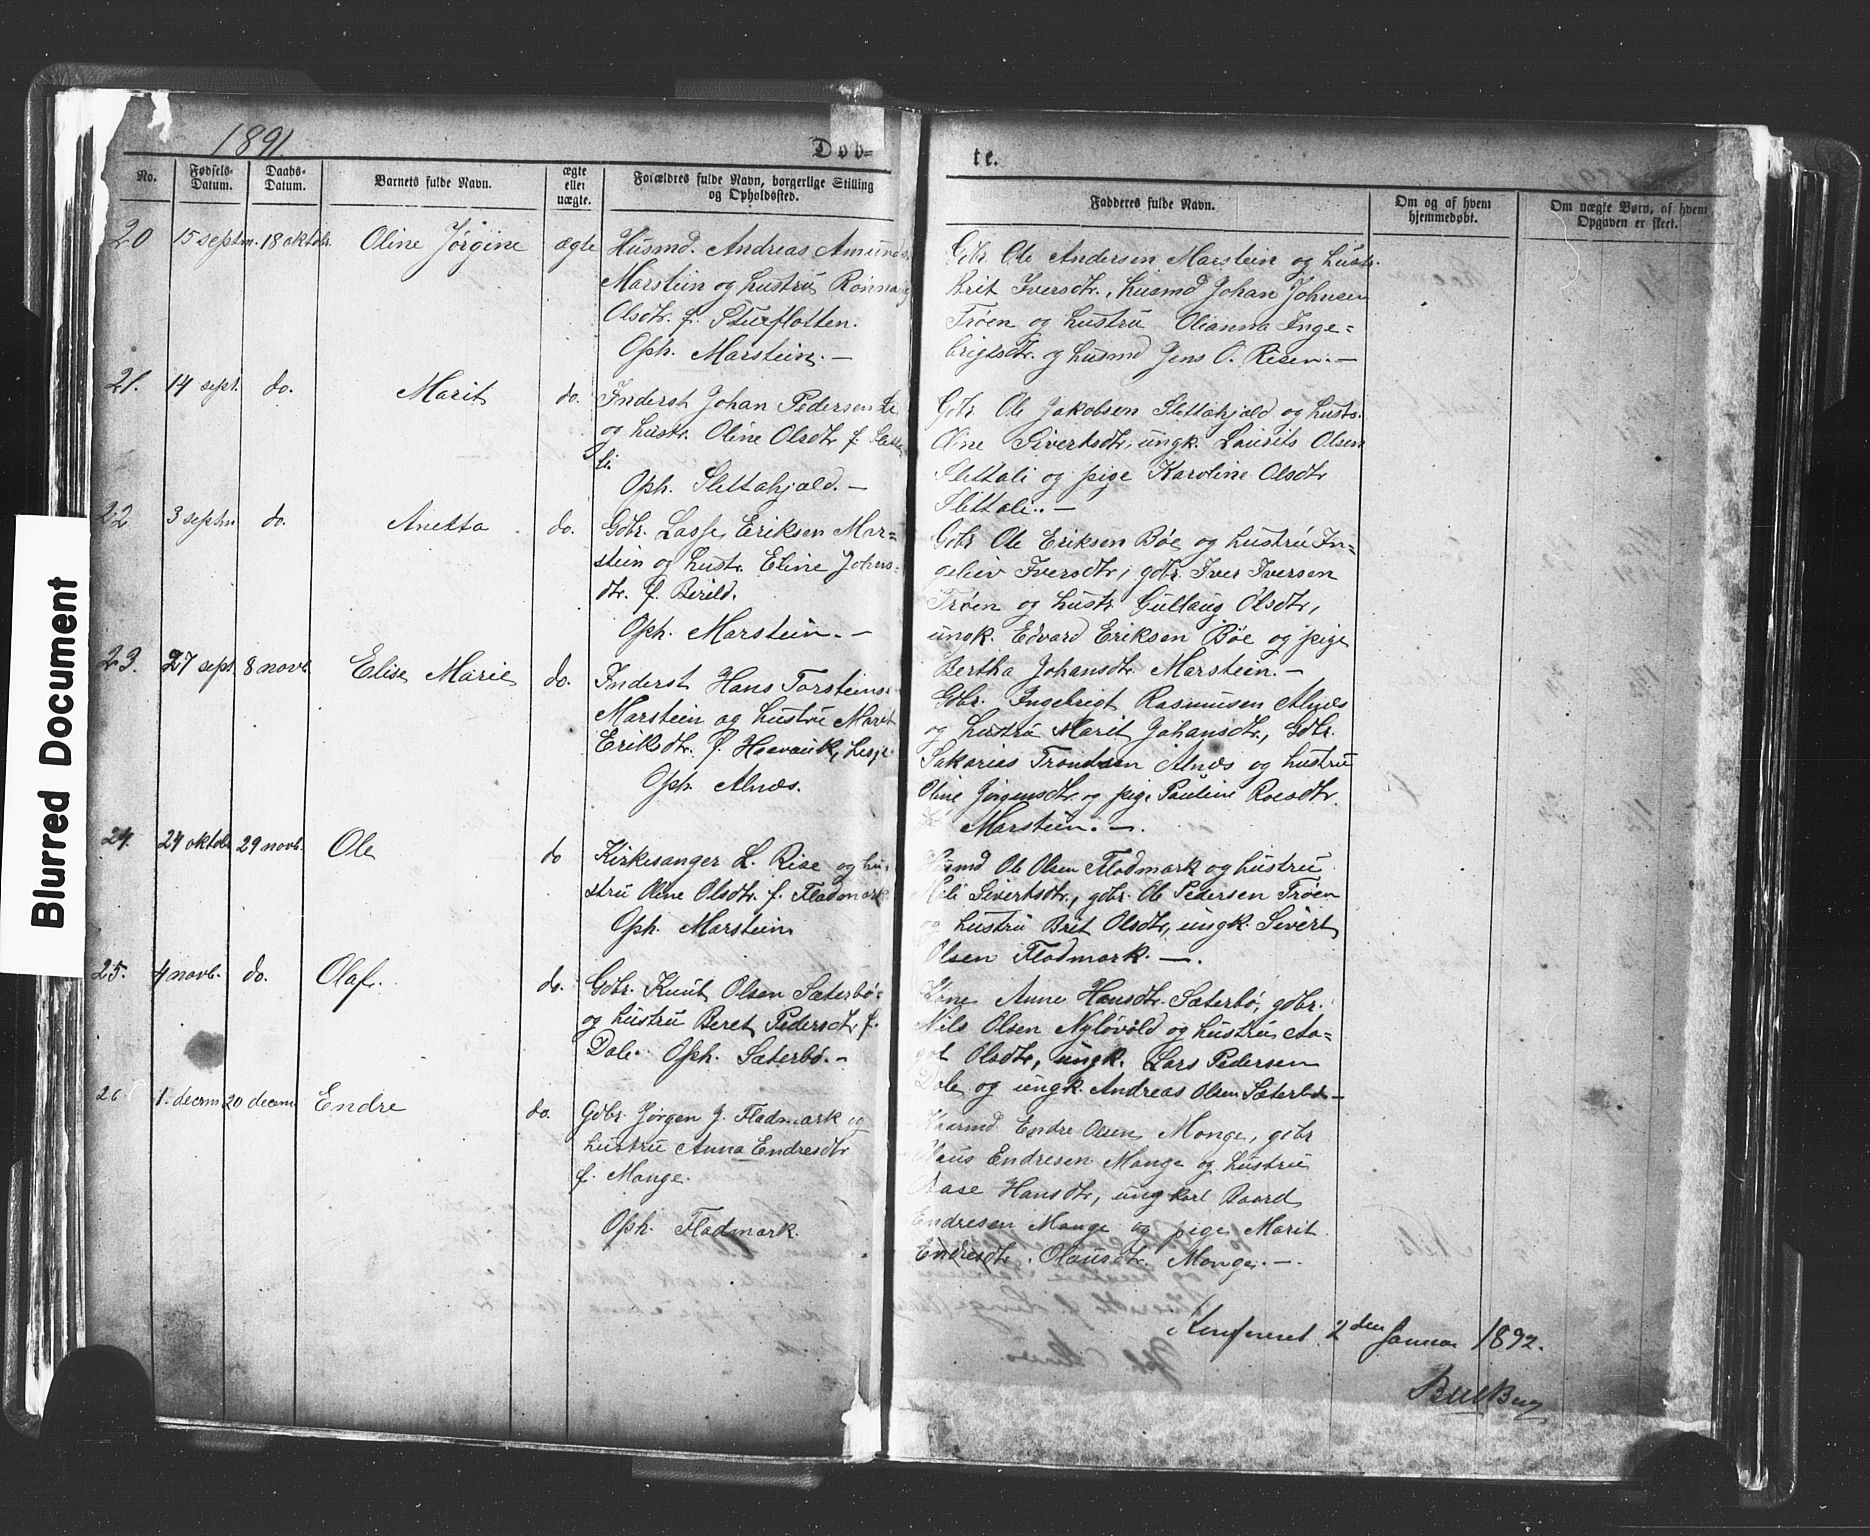 1891.
Døb=
te.
No.
Fødsels-
Datum.
Daabs-
Datum.
Barnets fulde Navn.
ægte
eller
uægte.
Forældres fulde Navn, borgerlige Stilling
og Opholdssted.
Fadderes fulde Navn.
Om og af hvem
hjemmedøbt.
Om uægte Børn, af hvem
Opgaven er skeet.
20 15 septm. 18 oktobr. Oline Jørgine ægte
Husmd. Andreas Amunds.
Marstein og hustru Rønnaug
Olsdtr. f. Sturflotten.
Oph. Marstein. —
Gdbr. Ole Andersen Marstein og hustr.
Brit Iversdtr., husmd Johan Johnsen
Trøen og hustru Olianna Inge=
brigtsdtr. og husmd Jens O. Risen. —
21. 14 sept. do. Marit do.
Inderst Johan Pedersen
og hustr. Oline Olsdtr f. Slette
li.
Oph. Slettahjald. —
Gdbr. Ole Jakobsen Slettahjald og hustr.
Oline Sivertsdtr, ungk. Laurits Olsen
Slettali og pige Karoline Olsdtr
Slettali. —
22 3 septm do. Anetta do.
Gdbr. Lasse Eriksen Mar=
stein og hustr. Eline Johns=
dtr. f. Birild.
Oph. Marstein. —
Gdbr Ole Eriksen Bøe og hustru In=
geleiv Iversdtr, gdbr. Iver Iversen
Trøen og hustr Gullaug Olsdtr,
ungk. Edvard Eriksen Bøe og pige
Bertha Johansdtr. Marstein. —
23. 27 sept. 8 novb. Elise Marie do.
Inderst Hans Torsteins.
Marstein og hustru Marit
Eriksdtr. f. Lesje.
Oph. Alnæs.
Gdbr. Ingebrigt Rasmusen Alnæs
og hustru Marit Johansdtr., Gdbr.
Sakarias Trondsen Alnæs og hustru
Oline Jørgensdtr. og pige Pauline Roesdtr.
Marstein. —
24. 24 oktobr 29 novb. Ole do
Kirkesanger L. Rise og hu=
stru Oline Olsdtr. f. Fladmark
Oph. Marstein
Husmd Ole Olsen Fladmark og hustru
Sivertsdtr., gdbr. Ole Pedersen Trøen
og hustru Brit Olsdtr, ungk. Sivert
Olsen Fladmark. —
25. 4 novb. do. Olaf. do.
Gdbr. Knut Olsen Sæterbø.
og hustru Beret Pedersdtr f.
Dale. Oph. Sæterbø. —
Kone Anne Hansdtr. Sæterbø, gdbr.
Nils Olsen Nyløvold og hustru Aa=
got Olsdtr, ungk. Lars Pedersen
Dale og ungk. Andreas Olsen Sæterbø —
26. 1. decem 20 decem Endre do.
Gdbr. Jørgen J. Fladmark og
hustru Anna Endresdtr
f. Monge.
Oph. Fladmark.
Endre Olsen Monge, gdbr
Olaus Endresen Monge og hustru
Aase Hansdtr, ungkarl Baard
Endresen Monge og pige Marit
Endresdtr. Olausdtr. Monge. —
Konfereret 2den Januar 1892.
Blurred Document